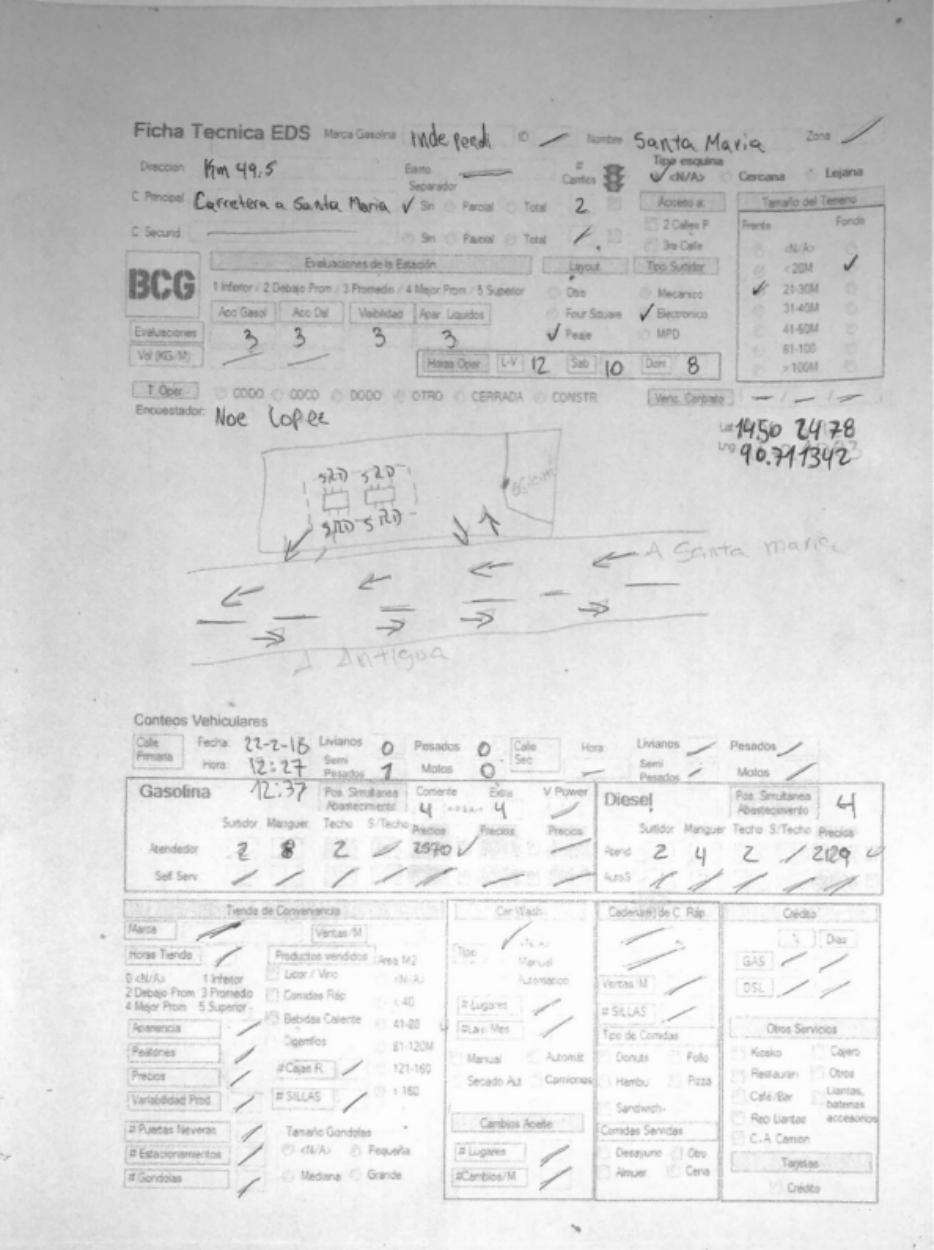 Ficha Tecnica EDS Marca Gasolina Independi ID Nombre Santa Maria Zona
Direccion Km 49.5 Barrio # Carriles Tipo esquina <N/A> Cercana Lejana
Separador
C. Principal Carretera a Santa Maria Sin Parcial Total 2 Acceso a: Tamaño del Terreno
C. Secund Sin Parcial Total 2 Calles P Frente Fondo
3ra Calle <N/A>
BCG Evaluaciones de la Estación Layout Tipo Surtidor < 20M
1 Inferior / 2 Debajo Prom / 3 Promedio / 4 Mejor Prom / 5 Superior Otro Mecanico 21-30M
Acc Gasol Acc Dsl Visibilidad Apar. Liquidos Four Square Electronico 31-40M
Evaluaciones 3 3 3 3 Peaje MPD 41-60M
61-100
Vol (KG/M) Horas Oper L-V 12 Sab 10 Dom 8 > 100M
T. Oper CODO COCO DODO OTRO CERRADA CONSTR Venc. Contrato - / - / -
Encuestador: Noe Lopez
Lat 1450 2478
Lng 90.711342
SRD SRD
SRD SRD
A Santa maria
A Antigua
Conteos Vehiculares
Calle Primaria Fecha: 22-2-18 Livianos 0 Pesados 0 Calle Sec Hora: Livianos Pesados
Hora: 12:27 Semi Pesados 1 Motos 0 Semi Pesados Motos
Gasolina 12:37 Pos. Simultanea Abastecimiento Corriente 4 Extra 4 V Power Diesel Pos. Simultanea Abastecimiento 4
Surtidor Manguer Techo S/Techo Precios Precios Precios Surtidor Manguer Techo S/Techo Precios
Atendedor 2 8 2 2570 Atend 2 4 2 2129
Self Serv AutoS
Tienda de Conveniencia Car Wash Cadena(s) de C. Ráp Crédito
Marca Ventas/M <N/A> % Dias
Horas Tienda Productos vendidos Area M2 Tipo Manual GAS
0 <N/A> 1 Inferior Licor / Vino <N/A> Automatico Ventas/M DSL
2 Debajo Prom 3 Promedio Comidas Ráp < 40 # Lugares # SILLAS
4 Mejor Prom 5 Superior Bebidas Caliente 41-80 #Lav/Mes Tipo de Comidas Otros Servicios
Apariencia Cigarrillos 81-120M Manual Automat Donuts Pollo Kiosko Cajero
Peatones #Cajas R. 121-160 Secado Aut Camiones Hambu Pizza Restauran Otros
Precios > 160 Sandwich Café/Bar Llantas, baterias accesorios
Variabilidad Prod # SILLAS Cambios Aceite Comidas Servidas Rep Llantas
# Puertas Neveras Tamaño Gondolas # Lugares Desayuno Otro C.A Camion
# Estacionamientos <N/A> Pequeña Almuer Cena Tarjetas
# Gondolas Mediana Grande #Cambios/M Crédito